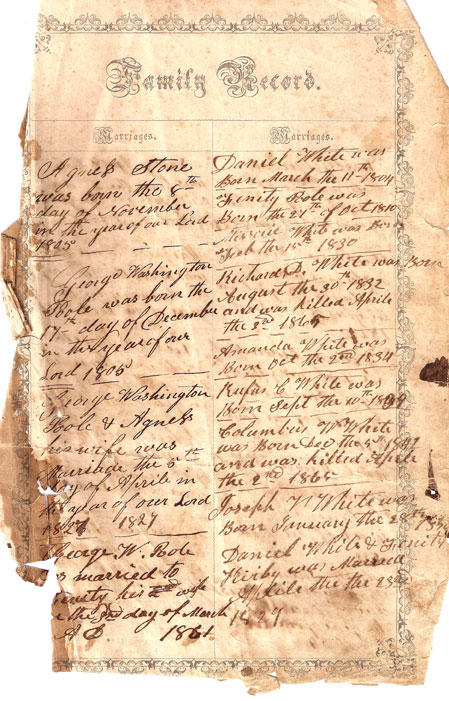 Family Record.
Marriages.
Agness Stone
was born the 8th
day of November
in the year of our Lord
1825
George Washington
Pole was born the
17th day of December
in the year of our
Lord 1805
George Washington
Pole & Agness
his wife was
Marriade the 5th
Day of Aprile in
the year of our Lord
1827 1827
George W. Pole
married to
wife
the 3rd day of March
A D 1861
Marriages.
Daniel White was
Born March the 11th 1804
Fenity Pole was
Born the 27th of Oct 1810
White was Born
Feb the 15th 1830
Richard D. White was Born
August the 30th 1832
and was killed Aprile
the 2nd 1865
Amanda White was
Born Oct the 2nd 1834
Rufus C White was
Born Sept the 10th
Columbus W White
was Born Dec the 5th
and was killed Aprile
the 2nd 1865
Joseph N White was
Born January the 28th
Daniel White & Fenity
Kirby was Married
Aprile the the
1829